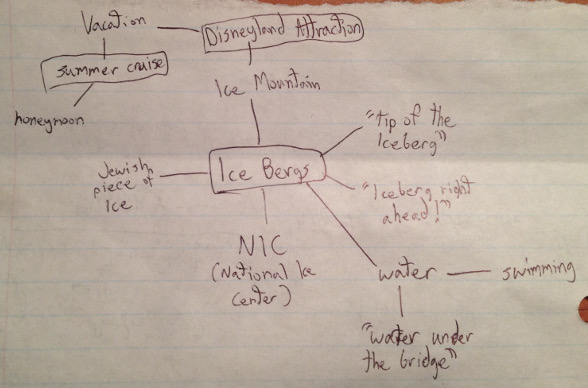 Vacation
Disneyland Attraction
summer cruise
honeymoon
Ice Mountain
"tip of the
Iceberg"
Jewish
piece of
Ice
Ice Bergs
"Iceberg right
ahead!"
NIC
(National Ice
Center)
water
swimming
"water under
the bridge"